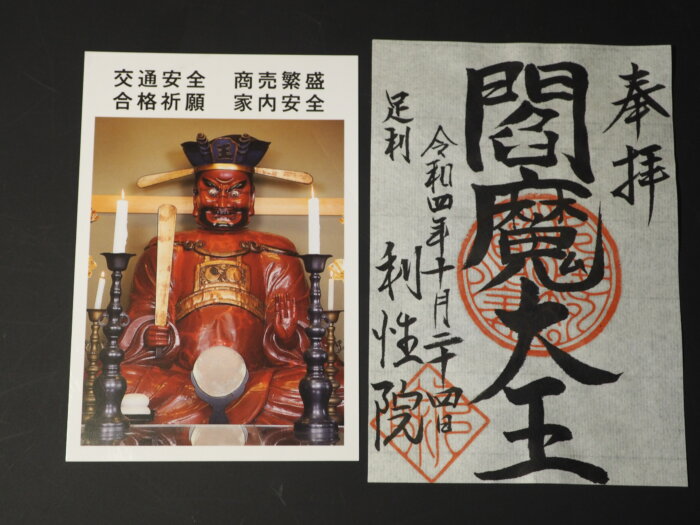 交通安全　商売繁盛
合格祈願　家内安全
王
奉拝
閻魔大王
令和四年十月二十四日
足利
利性院